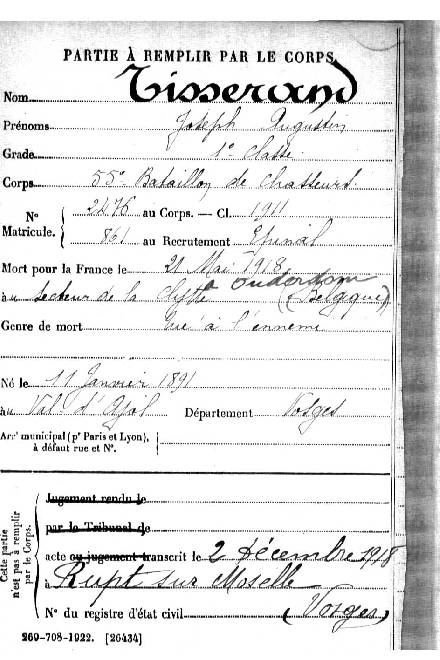 PARTIE À REMPLIR PAR LE CORPS.
Nom Tisserand
Prénoms Joseph Augustin
Grade 1e classe
Corps 55e Bataillon de Chasseurs.
N° Matricule. { 2476 au Corps. — Cl. 1911
861 au Recrutement Epinal
Mort pour la France le 21 Mai 1918
à Ouderdom
au secteur de la Clytte (Belgique)
Genre de mort Tué à l'ennemi
Né le 11 Janvier 1891
au Val d'Ajol Département Vosges
Arrt municipal (pr Paris et Lyon),
à défaut rue et N°.
Cette partie n'est pas à remplir par le Corps.
Jugement rendu le
par le Tribunal de
acte ou jugement transcrit le 2 décembre 1918
à Rupt sur Moselle
N° du registre d'état civil (Vosges)
269-708-1922. [26434]